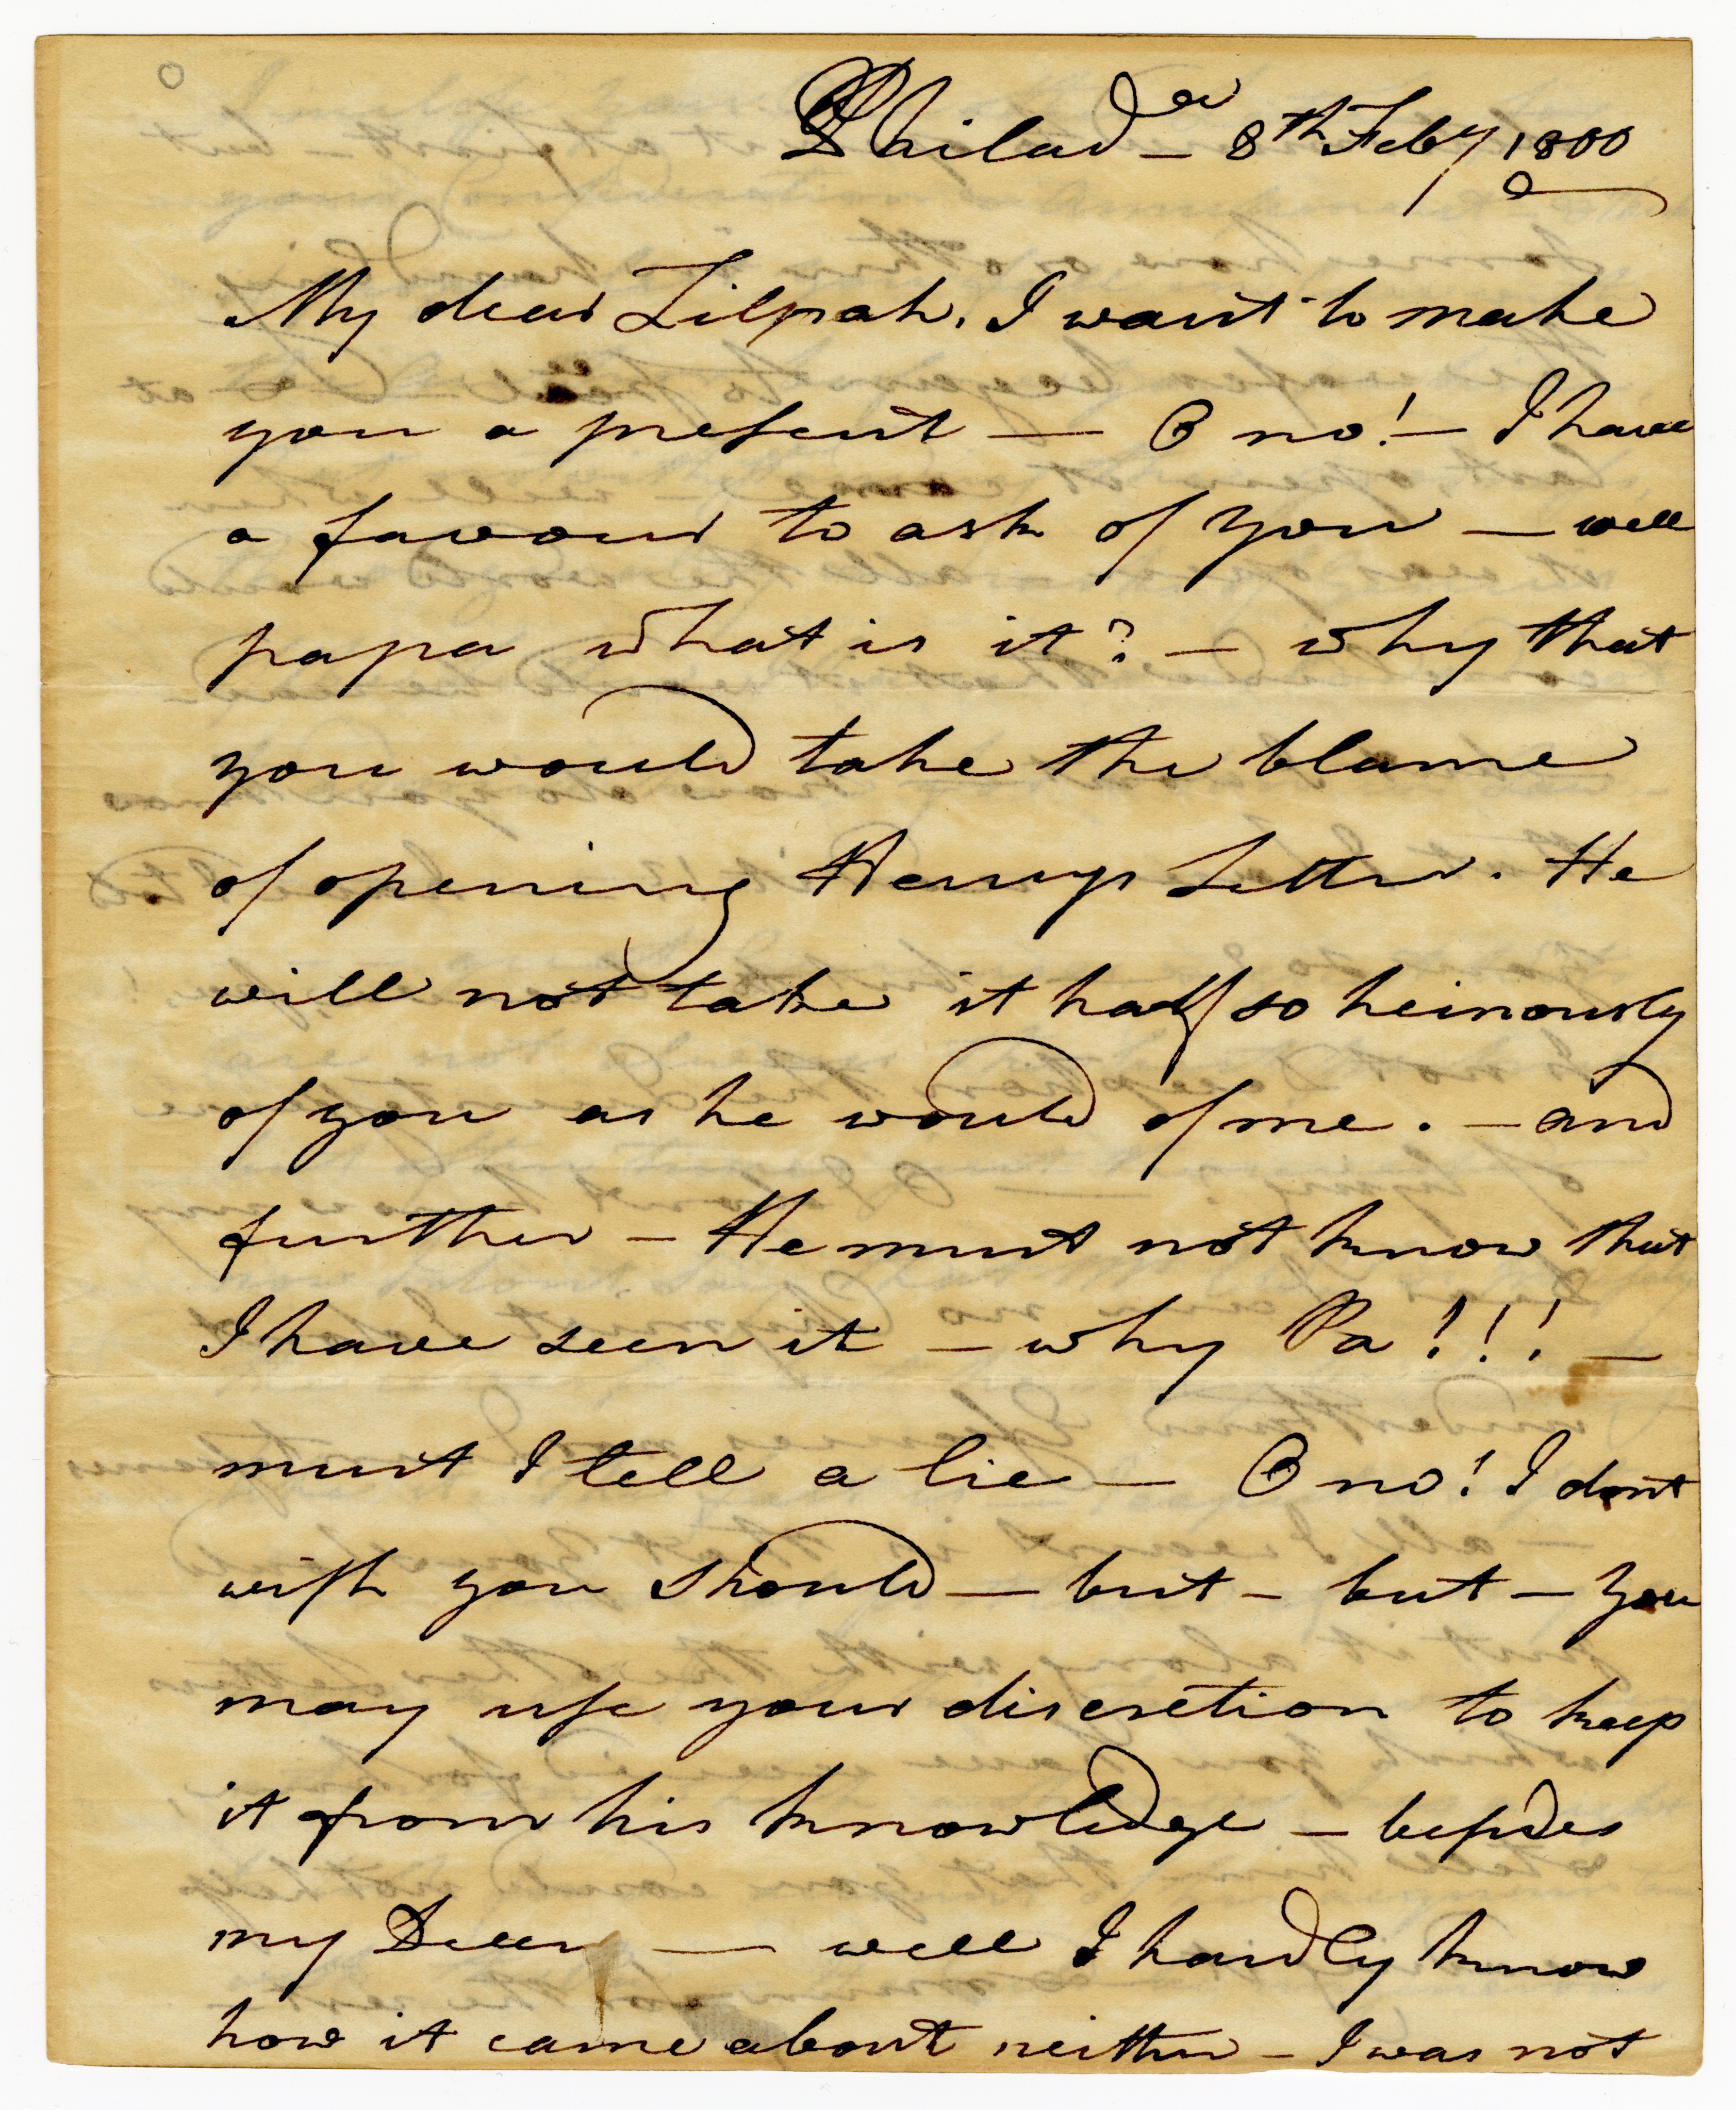 Philad.a — 8th Feby 1800
My dear Zilpah, I want to make
you a present — O no! — I have
a favour to ask of you — well
papa what is it? — why that
you would take the blame
of opening Henrys Letter. He
will not take it half so heinously
of you as he would of me. — and
further — He must not know that
I have seen it — why Pa!!! —
must I tell a lie — O no! I dont
wish you should — but — but — you
may use your discretion to keep
it from his knowledge — besides
my Dear — well I hardly know
how it came about neither — I was not